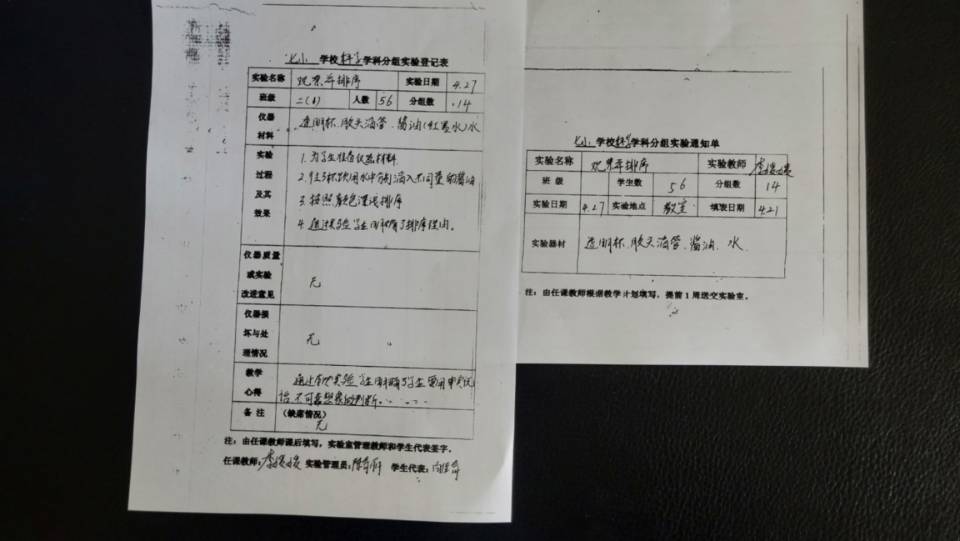 七小 学校科学学科分组实验登记表
实验名称 观察并排序 实验日期 4.27
班级 二(1) 人数 56 分组数 14
仪器材料 透明杯、胶头滴管、酱油(红墨水)水
实验过程及其效果
1. 为学生准备仪器材料.
2. 往杯饮用水中分别滴入不同量的酱油
3. 按照颜色深浅排序
4. 通过实验学生明白了排序
仪器质量或实验改进意见 无
仪器损坏与处理情况 无
教学心得 通过实验学生
不可靠想象的判断。
备注 (缺席情况)
无
注:由任课教师课后填写,实验室管理教师和学生代表签字。
任课教师: 李媛媛 实验管理员: 学生代表:
七小 学校科学学科分组实验通知单
实验名称 观察并排序 实验教师 李媛媛
班级 学生数 56 分组数 14
实验日期 4.27 实验地点 教室 填表日期 4.21
实验器材 透明杯、胶头滴管、酱油、水
注:由任课教师根据教学计划填写,提前1周送交实验室。